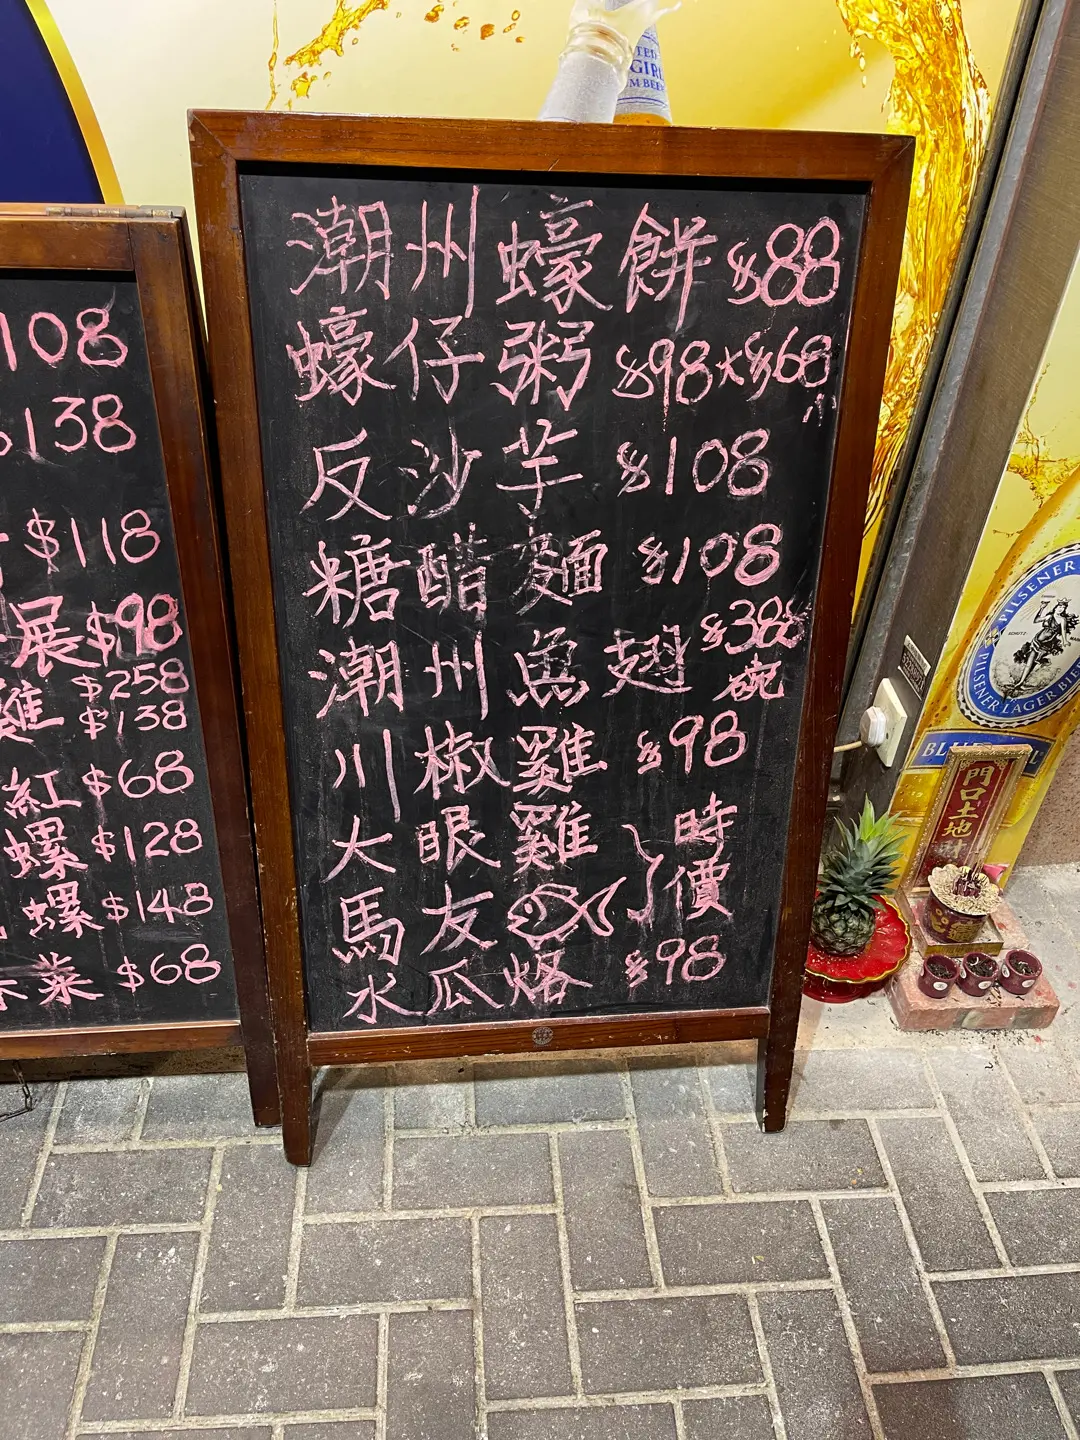 108
$138
$118
展$98
雞 $258
$138
紅 $68
螺 $128
螺 $148
菜 $68
潮州蠔餅 $88
蠔仔粥 $98大 $68小
反沙芋 $108
糖醋麵 $108
潮州魚翅 $388碗
川椒雞 $98
大眼雞
馬友
時價
水瓜烙 $98
GIRL
M BEER
PILSENER
PILSENER LAGER BIER
門口土地財